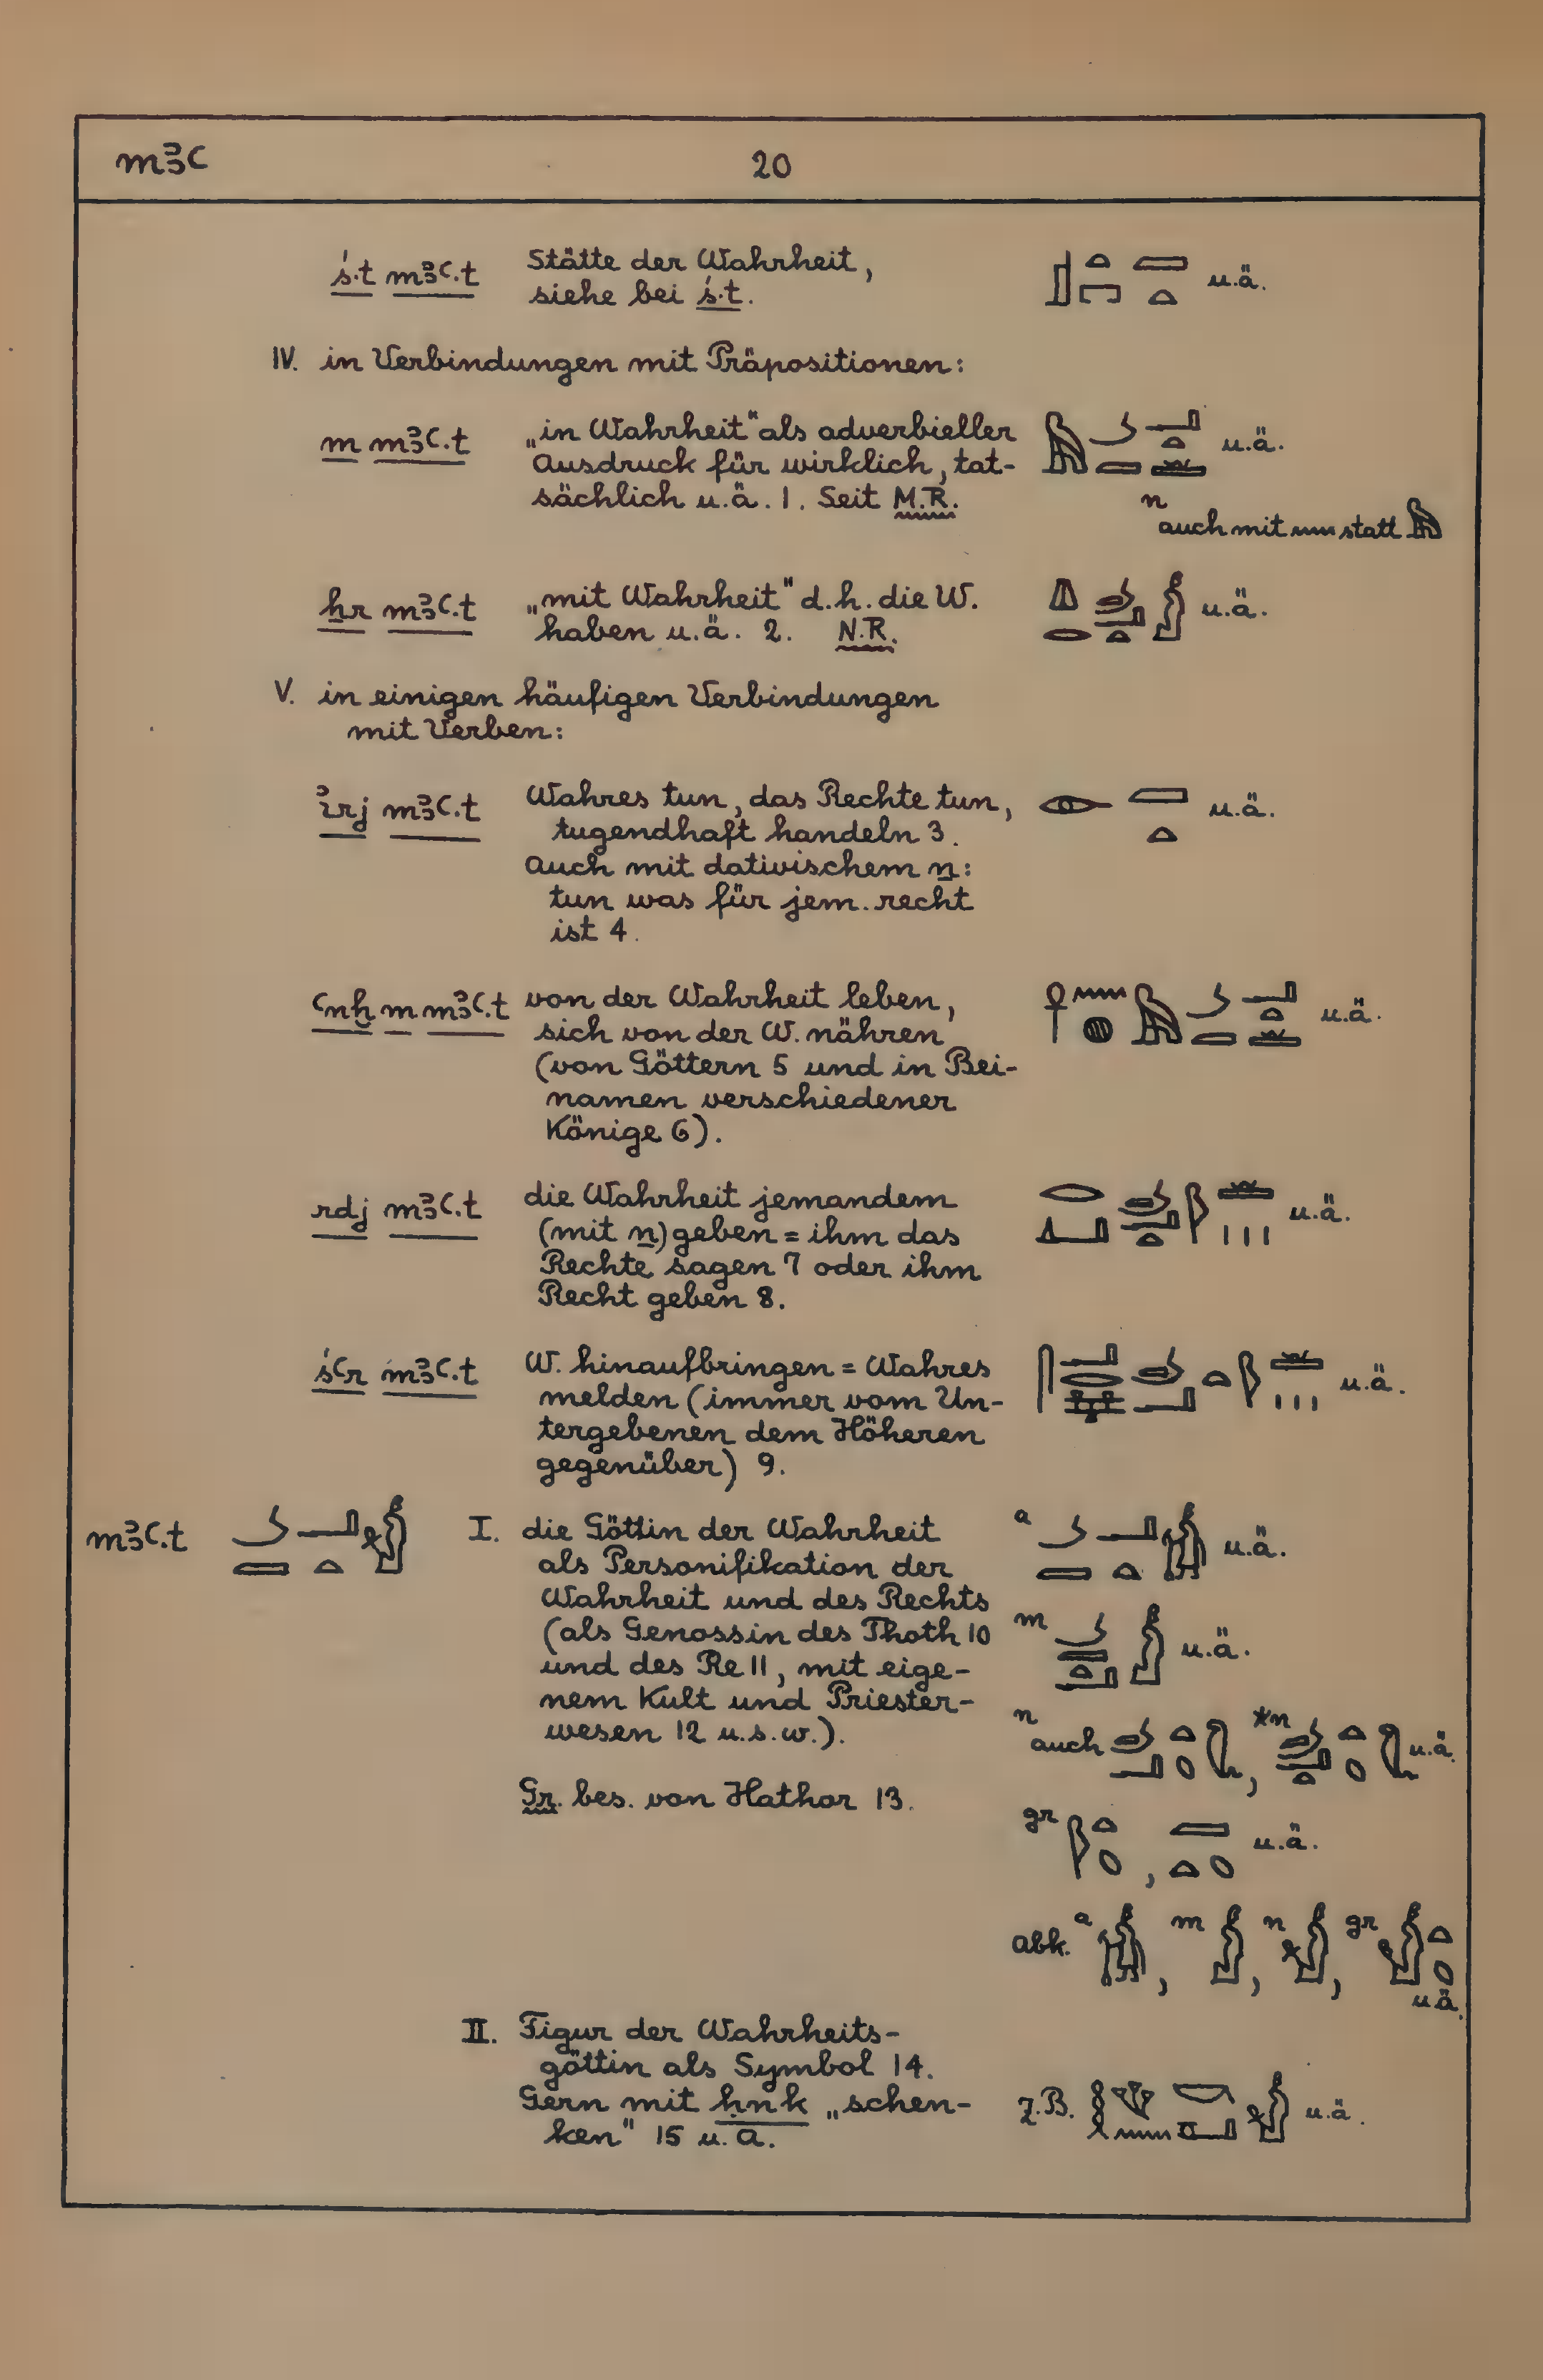 mꜣꜥ 20
ś.t mꜣꜥ.t Stätte der Wahrheit, u.ä.
siehe bei ś.t.
IV. in Verbindungen mit Präpositionen:
m mꜣꜥ.t „in Wahrheit" als adverbieller u.ä.
Ausdruck für wirklich, tat-
sächlich u.ä. 1. Seit M.R. n
auch mit 𓈖 statt 𓅓
ẖr mꜣꜥ.t „mit Wahrheit" d.h. die W. u.ä.
haben u.ä. 2. N.R.
V. in einigen häufigen Verbindungen
mit Verben:
ꞽrj mꜣꜥ.t Wahres tun, das Rechte tun, u.ä.
tugendhaft handeln 3.
Auch mit dativischem n:
tun was für jem. recht
ist 4.
ꜥnḫ m mꜣꜥ.t von der Wahrheit leben, u.ä.
sich von der W. nähren
(von Göttern 5 und in Bei-
namen verschiedener
Könige 6).
rdj mꜣꜥ.t die Wahrheit jemandem u.ä.
(mit n) geben = ihm das
Rechte sagen 7 oder ihm
Recht geben 8.
śꜥr mꜣꜥ.t W. hinaufbringen = Wahres u.ä.
melden (immer vom Un-
tergebenen dem Höheren
gegenüber) 9.
mꜣꜥ.t I. die Göttin der Wahrheit a u.ä.
als Personifikation der
Wahrheit und des Rechts
(als Genossin des Thoth 10 m u.ä.
und des Re 11, mit eige-
nem Kult und Priester-
wesen 12 u.s.w.). n auch , *n u.ä.
Gr. bes. von Hathor 13.
gr , u.ä.
abk. a , m , n , gr
u.ä.
II. Figur der Wahrheits-
göttin als Symbol 14.
Gern mit ḥnk „schen- z.B. u.ä.
ken" 15 u. a.